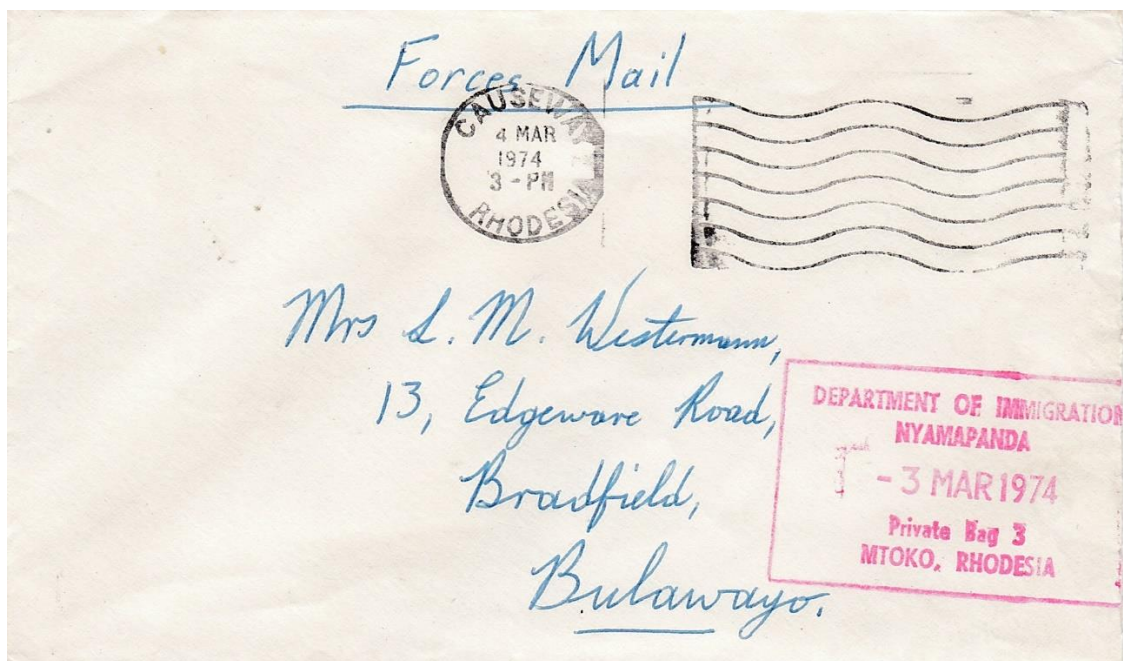 Forces Mail
CAUSEWAY
4 MAR
1974
3-PM
RHODESIA
Mrs L. M. Westermann,
13, Edgeware Road,
Bradfield,
Bulawayo.
DEPARTMENT OF IMMIGRATION
NYAMAPANDA
-3 MAR 1974
Private Bag 3
MTOKO, RHODESIA